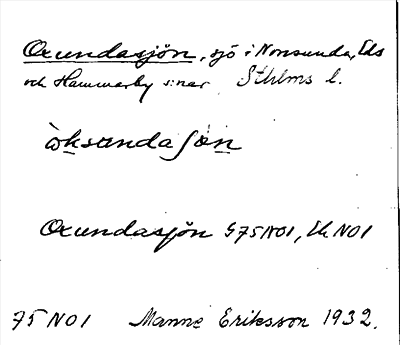 Oxundasjön, sjö i Norrsunda, Eds
och Hammarby s:nar Sthlms l.
òksundaʃön
Oxundasjön G75NO1, Ek NO1
75 NO1 Manne Eriksson 1932.